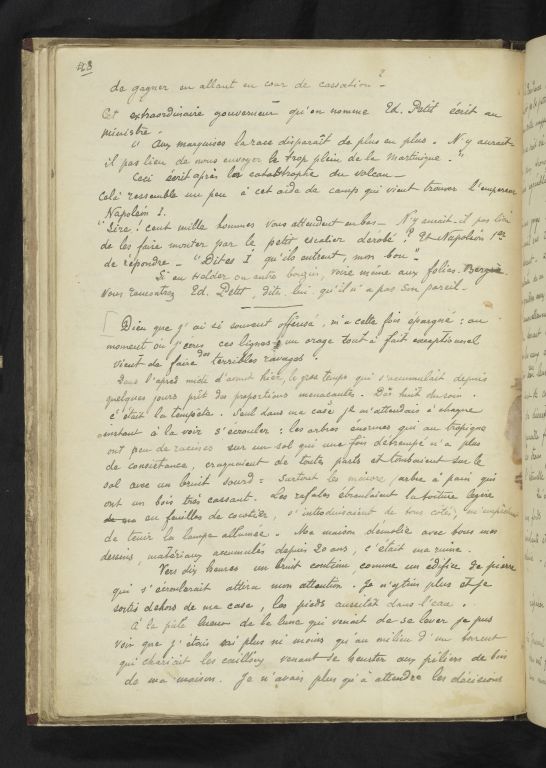 43
de gagner en allant en cour de cassation?
Cet extraordinaire gouverneur qu'on nomme Ed. Petit écrit au
ministre.
" Aux marquises la race disparaît de plus en plus. N'y aurait-
il pas lieu de nous envoyer le trop plein de la Martinique. ? "
Ceci écrit après la catastrophe du volcan —
Celà ressemble un peu à cet aide de camp qui vient trouver l'empereur
Napoléon I.
"Sire! cent mille hommes vous attendent en bas — N'y aurait-il pas lieu
de les faire monter par le petit escalier dérobé ? Et Napoléon 1er
de répondre — "Dites I qu'ils entrent, mon bon" —
Si en ou autre bouzin, voire même aux folies. Bergère
vous rencontrez Ed. Petit, dites lui qu'il n'a pas son pareil —
Dieu que j'ai si souvent offensé, m'a cette fois épargné : au
moment où j'écris ces lignes un orage tout à fait exceptionnel
vient de faire des terribles ravages :
Dans l'après midi d'avant hier, le gros temps qui s'accumulait depuis
quelques jours prit des proportions menaçantes. Dès huit du soir
c'était la tempête. Seul dans ma case je m'attendais à chaque
instant à la voir s'écrouler : les arbres énormes qui au tropique
ont peu de racines sur un sol qui une fois détrempé n'a plus
de consistance, craquaient de toutes parts et tombaient sur le
sol avec un bruit sourd = Surtout les maiore, arbre à pain qui
ont un bois très cassant. Les rafales ébranlaient la toiture légère
en feuilles de cocotier, s'introduisaient de tous cotés, m'empêchant
de tenir la lampe allumée. Ma maison démolie avec tous mes
dessins, matériaux accumulés depuis 20 ans, c'était ma ruine.
Vers dix heures un bruit continu, comme un édifice de pierre
qui s'écroulerait attira mon attention. Je n'y tins plus et je
sortis dehors de ma case, les pieds aussitôt dans l'eau.
A la pâle lueur de la lune qui venait de se lever je pus
voir que j'étais ni plus ni moins qu'au milieu d'un torrent
qui chariait les cailloux venant se heurter aux piliers de bois
de ma maison. Je n'avais plus qu'à attendre les décisions